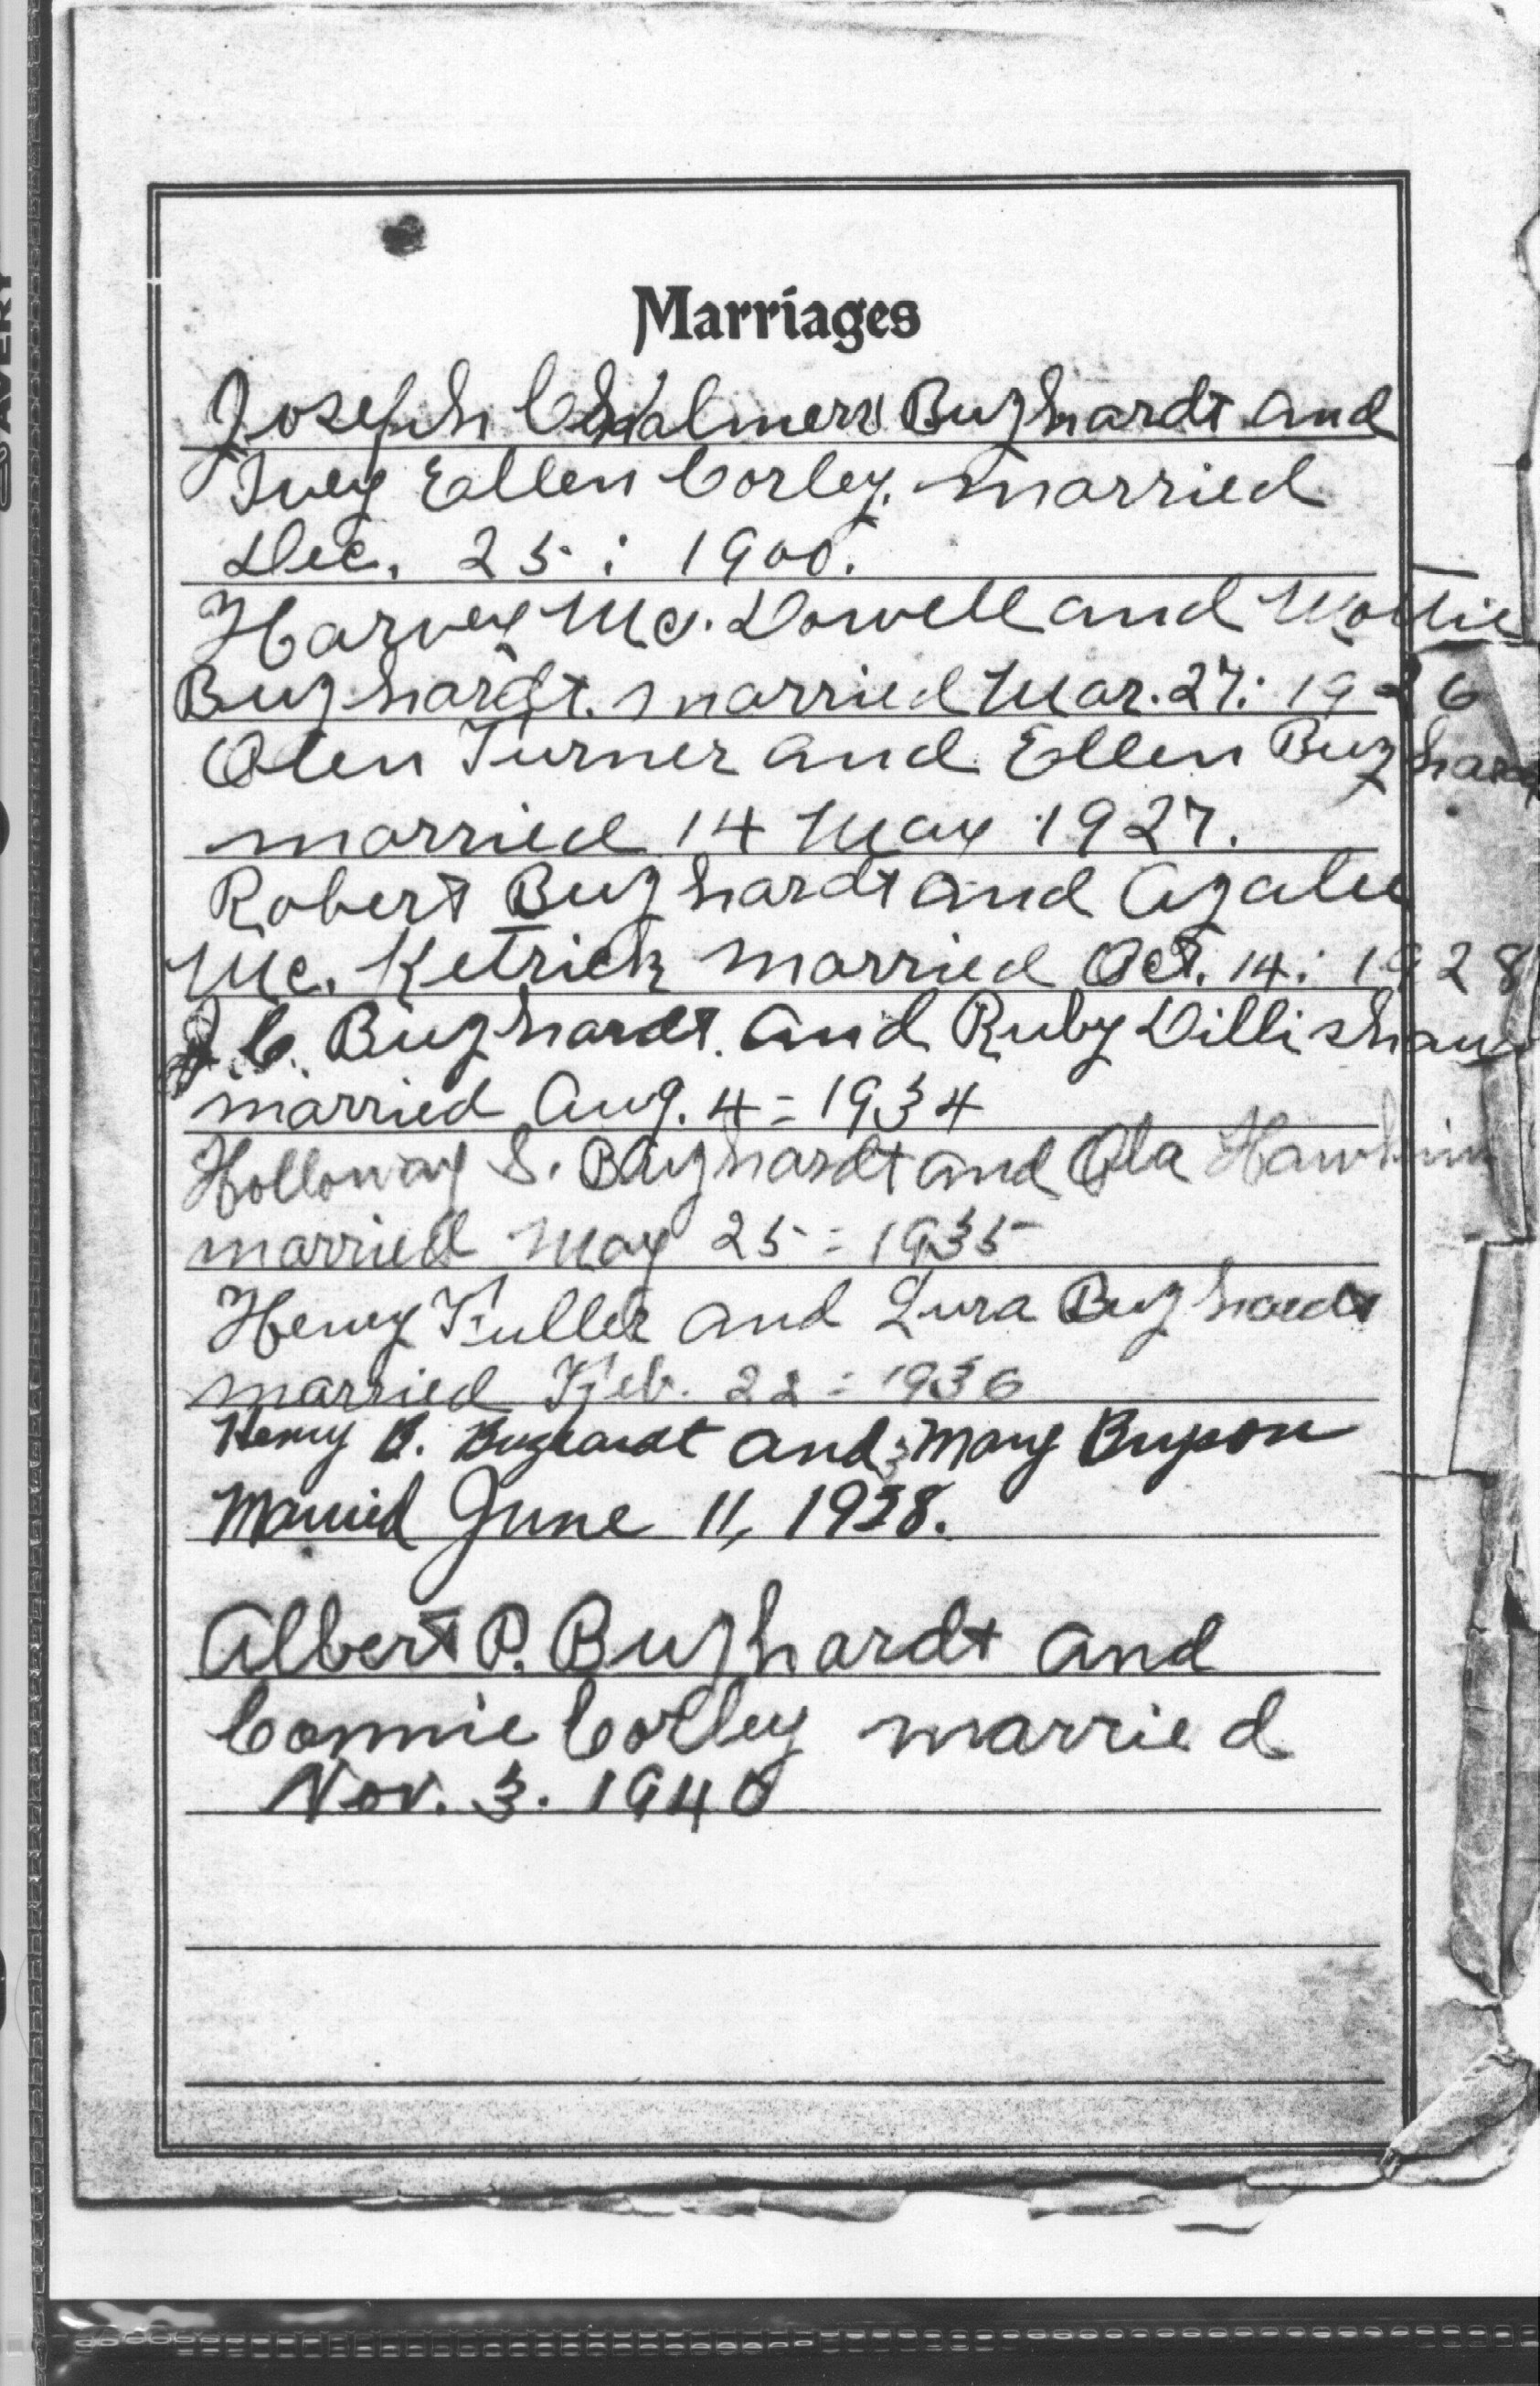 AVERY
Marriages
Joseph Chalmers Buzhardt and
Ivey Ellen Corley. married
Dec. 25: 1900.
Harvey Mc. Dowell and Mollie
Buzhardt. married Mar. 27: 1926
Olen Turner and Ellen Buzhard
married 14 May 1927.
Robert Buzhardt and Azalee
Mc. Ketrick married Oct. 14: 1928
J. C. Buzhardt. and Ruby Dillishaw
married Aug. 4 = 1934
Holloway S. Buzhardt and Ola Hawkins
married May 25 = 1935
Henry Fuller and Lura Buzhardt
married Feb. 22 = 1936
Henry B. Buzhardt and Mary
Married June 11, 1938.
Albert P. Buzhardt and
Connie Corley married
Nov. 3. 1940